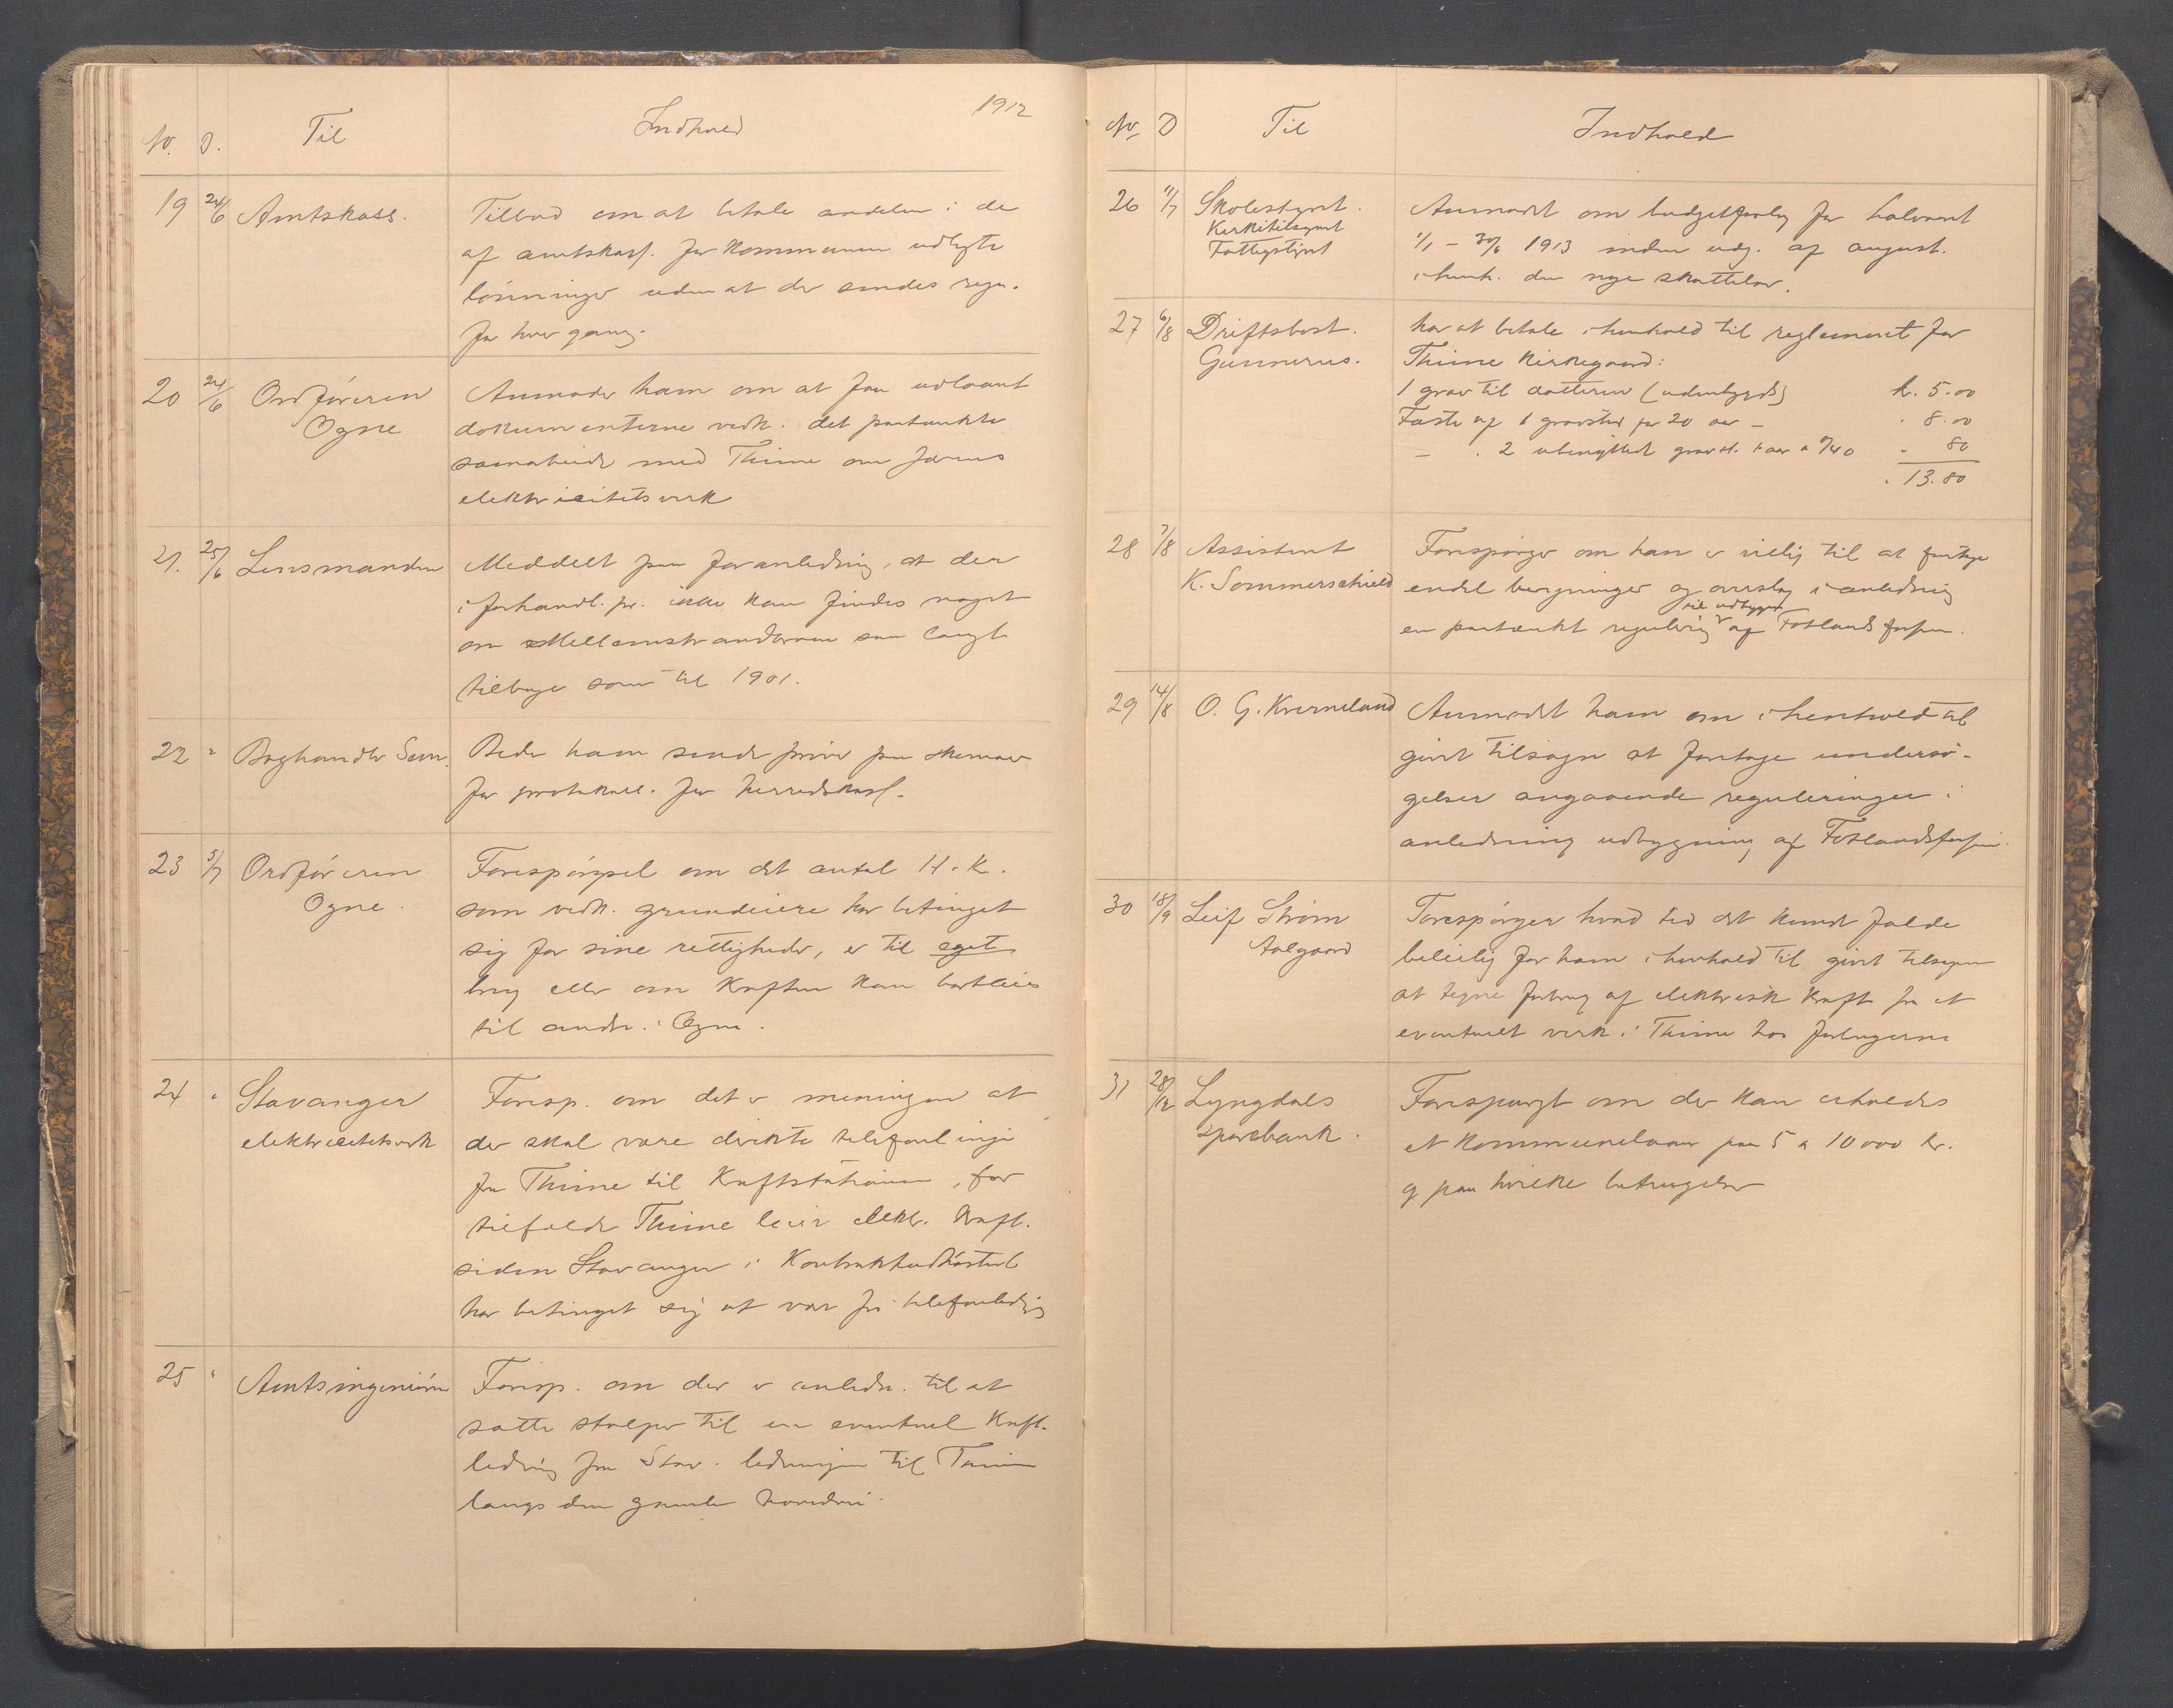 1912
No. D. Til Indhold
19 24/6 Amtskass. Tilbud om at betale andelen i de
af amtskass. for kommunen udlagte
lønninger uden at der sendes regn.
for hver gang.
20 24/6 Ordføreren Anmoder ham om at faa udlaant
Ogne dokumenterne vedk. det paatænkte
samarbeide med Thime om Jærens
elektricitetsverk
21. 25/6 Lensmanden Meddelt paa foranledning, at der
i forhandl. pr. ikke kan findes noget
om Mellemstrandsveien saa langt
tilbage som til 1901.
22 " Boghandler Beder ham sende prøve paa skemaer
for protokoll. for herredskass.
23 5/7 Ordføreren Forespørgsel om det antal H.K.
Ogne. som vedk. grundeiere har betinget
sig for sine rettigheder, er til eget
brug eller om kraften kan bortleies
til andre i Ogne.
24 " Stavanger Foresp. om det er meningen at
elektricitetsverk der skal være direkte telefonlinje
fra Thime til kraftstationen, for
tilfælde Thime leier elektr. kraft.
siden Stavanger i kontraktudkastet
har betinget sig at være fri telefonledning
25 " Amtsingeniøren Foresp. om der er anledn. til at
sætte stolper til en eventuel kraft-
ledning fra Stav. ledningen til Thime
langs den gamle hovedvei.
No. D Til Indhold
26 11/7 Skolestyret. Anmodet om budgetforslag for halvaaret
Kirketilsynet 1/1 – 30/6 1913 inden udg. af august.
Fattigstyret i henh. den nye skattelov.
27 6/8 Driftsbest. har at betale i henhold til reglement for
Gunnerus. Thime kirkegaard:
1 grav til datteren (udenbygds) k. 5.00
Fæste af 1 gravsted for 20 aar – " 8.00
– " 2 ubenyttet gravst. 1 aar a 0/40 " 80
" 13.80
28 7/8 Assistent Forespørger om han er villig til at foretage
K. Sommerschield endel beregninger og overslag i anledning
til udbygn.
en paatænkt regulering af Fotlandsfossen.
29 14/8 O. G. Kverneland Anmodet ham om i henhold til
givet tilsagn at foretage undersø-
gelser angaaende reguleringer i
anledning udbygning af Fotlandsfossen.
30 18/9 Leif Strøm Forespørger hvad tid det kunde falde
Aalgaard beleilig for ham i henhold til givet tilsagn
at tegne forbrug af elektrisk kraft fra et
eventuelt verk i Thime hos forbrugerne
31 28/12 Lyngdals Forespurgt om der kan erholdes
sparebank. et kommunelaan paa 5 a 10000 kr.
og paa hvilke betingelser